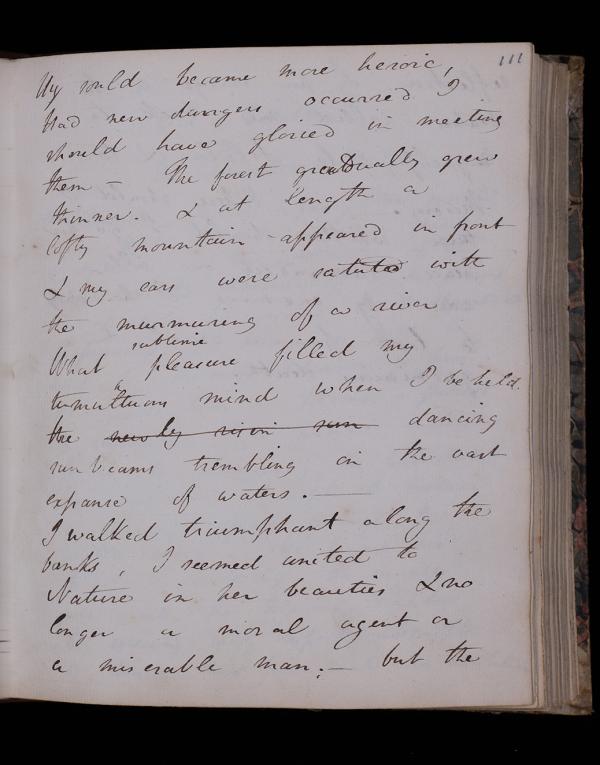 111
My sould became more heroic,
Had new dangers occurred I
should have gloried in meeting
them – The forest greadually grew
thinner. & at length a
lofty mountain appeared in front
& my ears were satuted with
the murmuring of a river
sublime
What pleasure filled my
tumultuous mind when I beheld.
the newly risin sun dancing
sunbeams trembling on the vast
expanse of waters. —
I walked triumphant along the
banks, I seemed united to
Nature in her beauties & no
longer a moral agent or
a miserable man; – but the